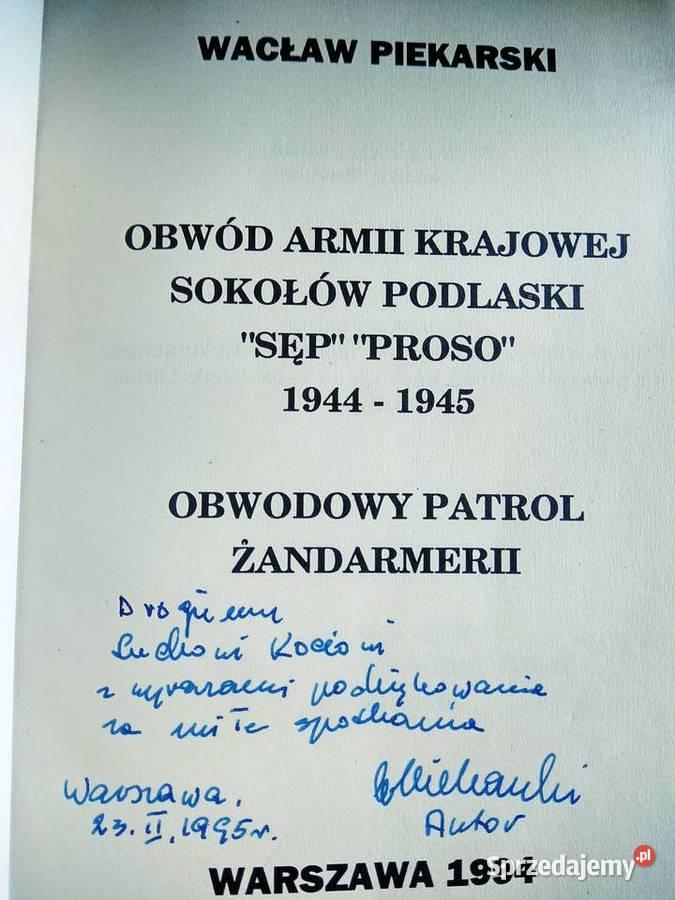 WACŁAW PIEKARSKI
OBWÓD ARMII KRAJOWEJ
SOKOŁÓW PODLASKI
"SĘP" "PROSO"
1944 - 1945
OBWODOWY PATROL
ŻANDARMERII
Drogiemu
z wyrazami podziękowania
za miłe spotkania
Warszawa,
23. II. 1995 r.
Autor
WARSZAWA 1994
Sprzedajemy.pl